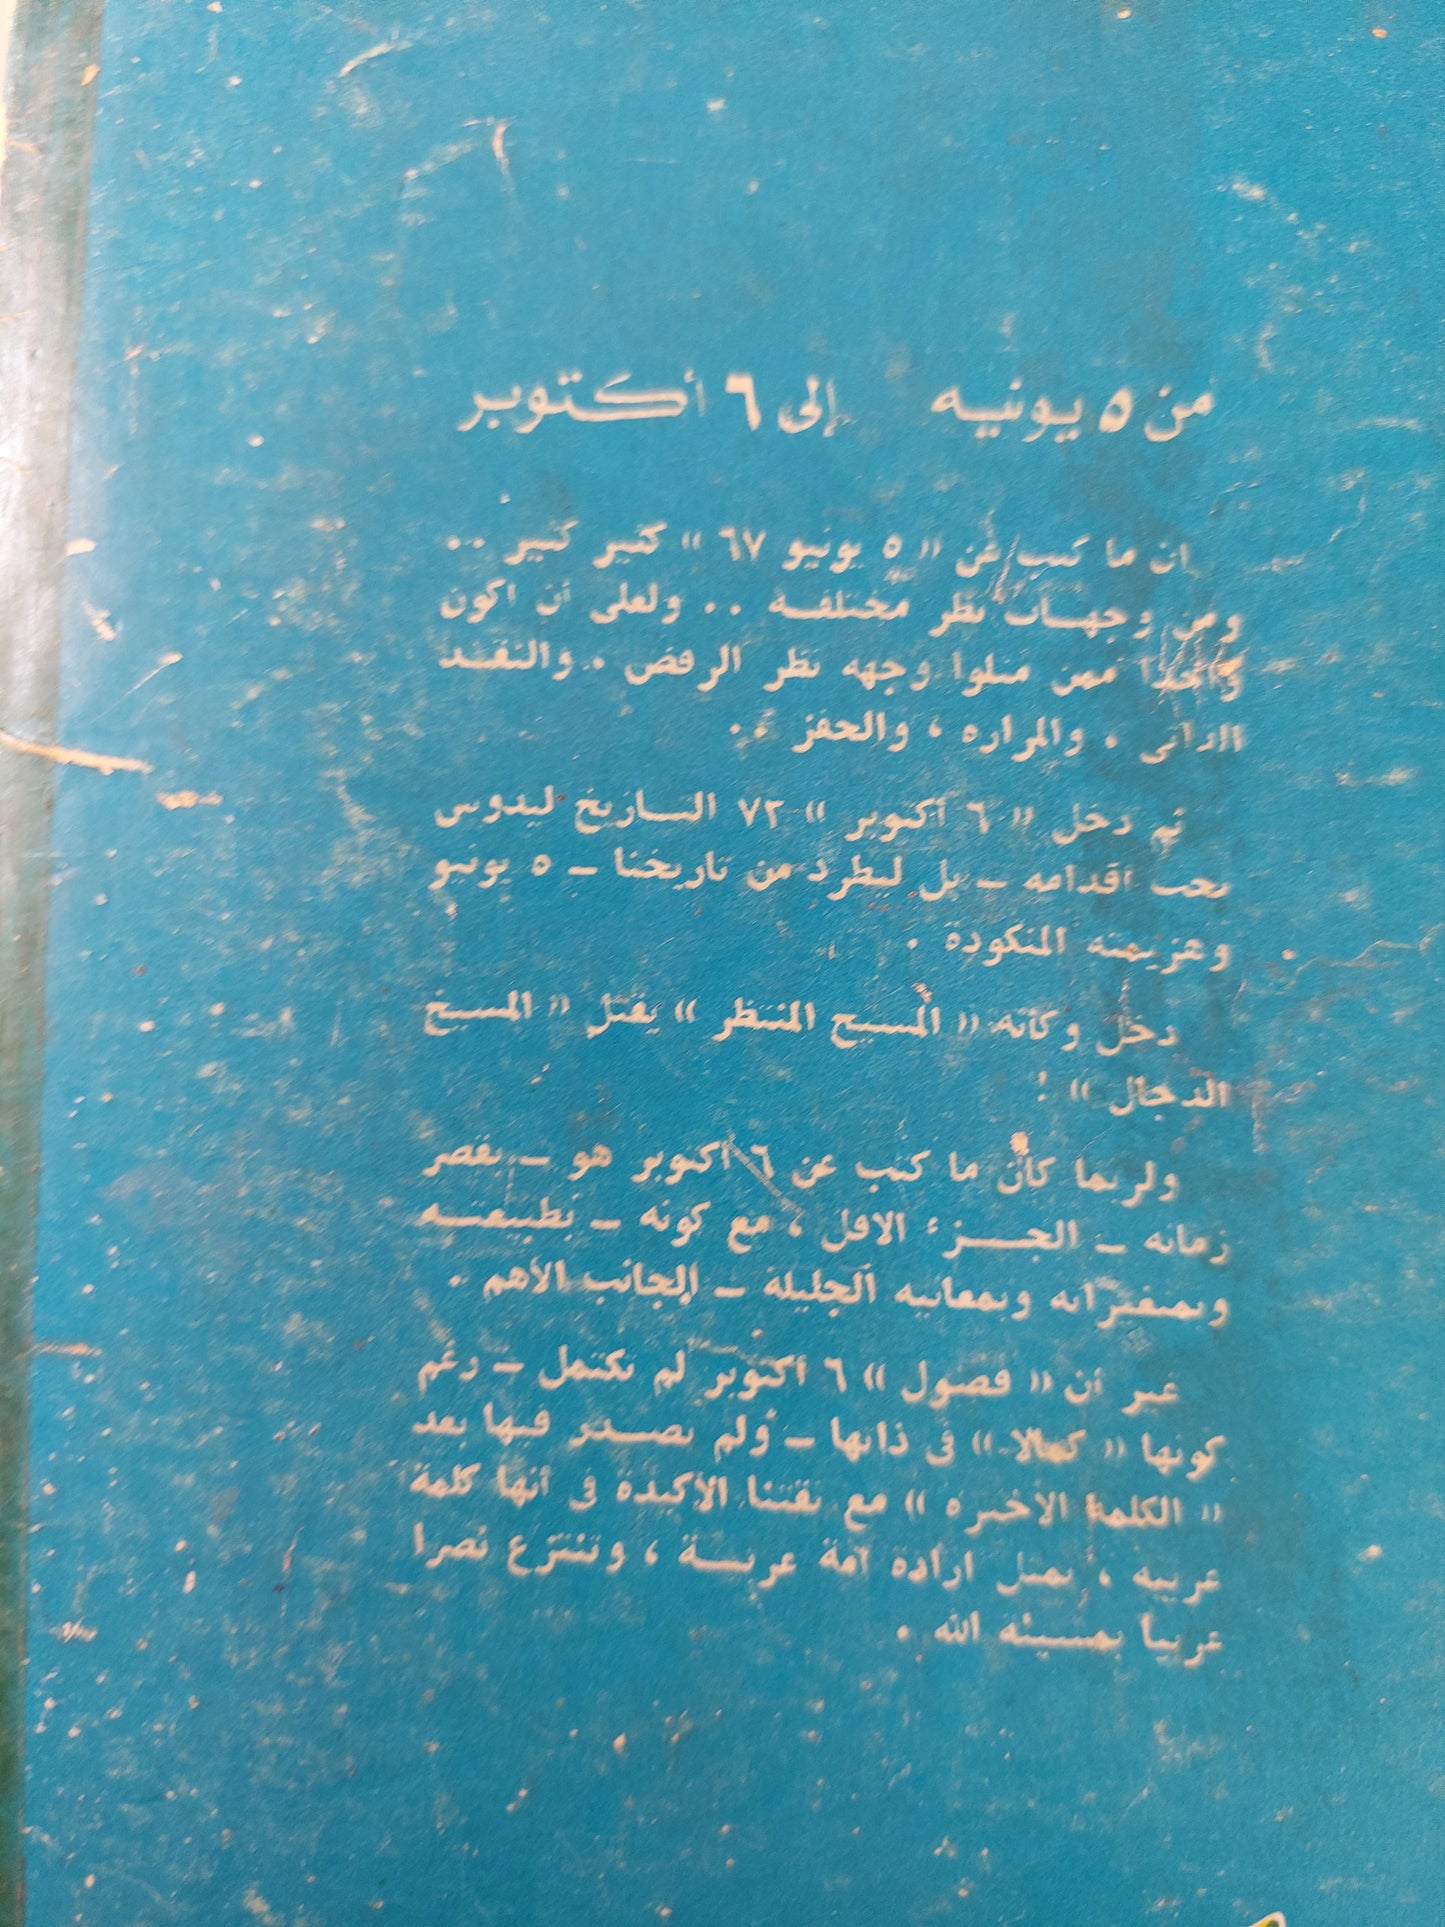 من ٥ يونيه إلى ٦ أكتوبر
ان ما كتب عن « ٥ يونيو ٦٧ » كثير كثير ..
ومن وجهات نظر مختلفة .. ولعلى أن أكون
واحدا ممن مثلوا وجهة نظر الرفض . والنقد
الذاتى ، والمرارة ، والحفز ..
ثم دخل « ٦ أكتوبر » ٧٣ التاريخ ليدوس
تحت أقدامه ـ بل ليطرد من تاريخنا ـ ٥ يونيو
وهزيمته المنكودة .
دخل وكأنه « المسيح المنتظر » يقتل « المسيخ
الدجال » !
ولربما كان ما كتب عن ٦ أكتوبر هو ـ بقصر
زمانه ـ الجزء الاقل ، مع كونه ـ بطبيعته
وبمتغيراته وبمعانيه الجليلة ـ الجانب الأهم .
غير أن « فصول » ٦ أكتوبر لم تكتمل ـ رغم
كونها « كمالا » فى ذاتها ـ ولم تصدر فيها بعد
« الكلمة الأخيرة » مع ثقتنا الأكيدة فى أنها كلمة
عربية ، تمثل ارادة أمة عربية ، وتنتزع نصرا
عربيا بمشيئة الله .